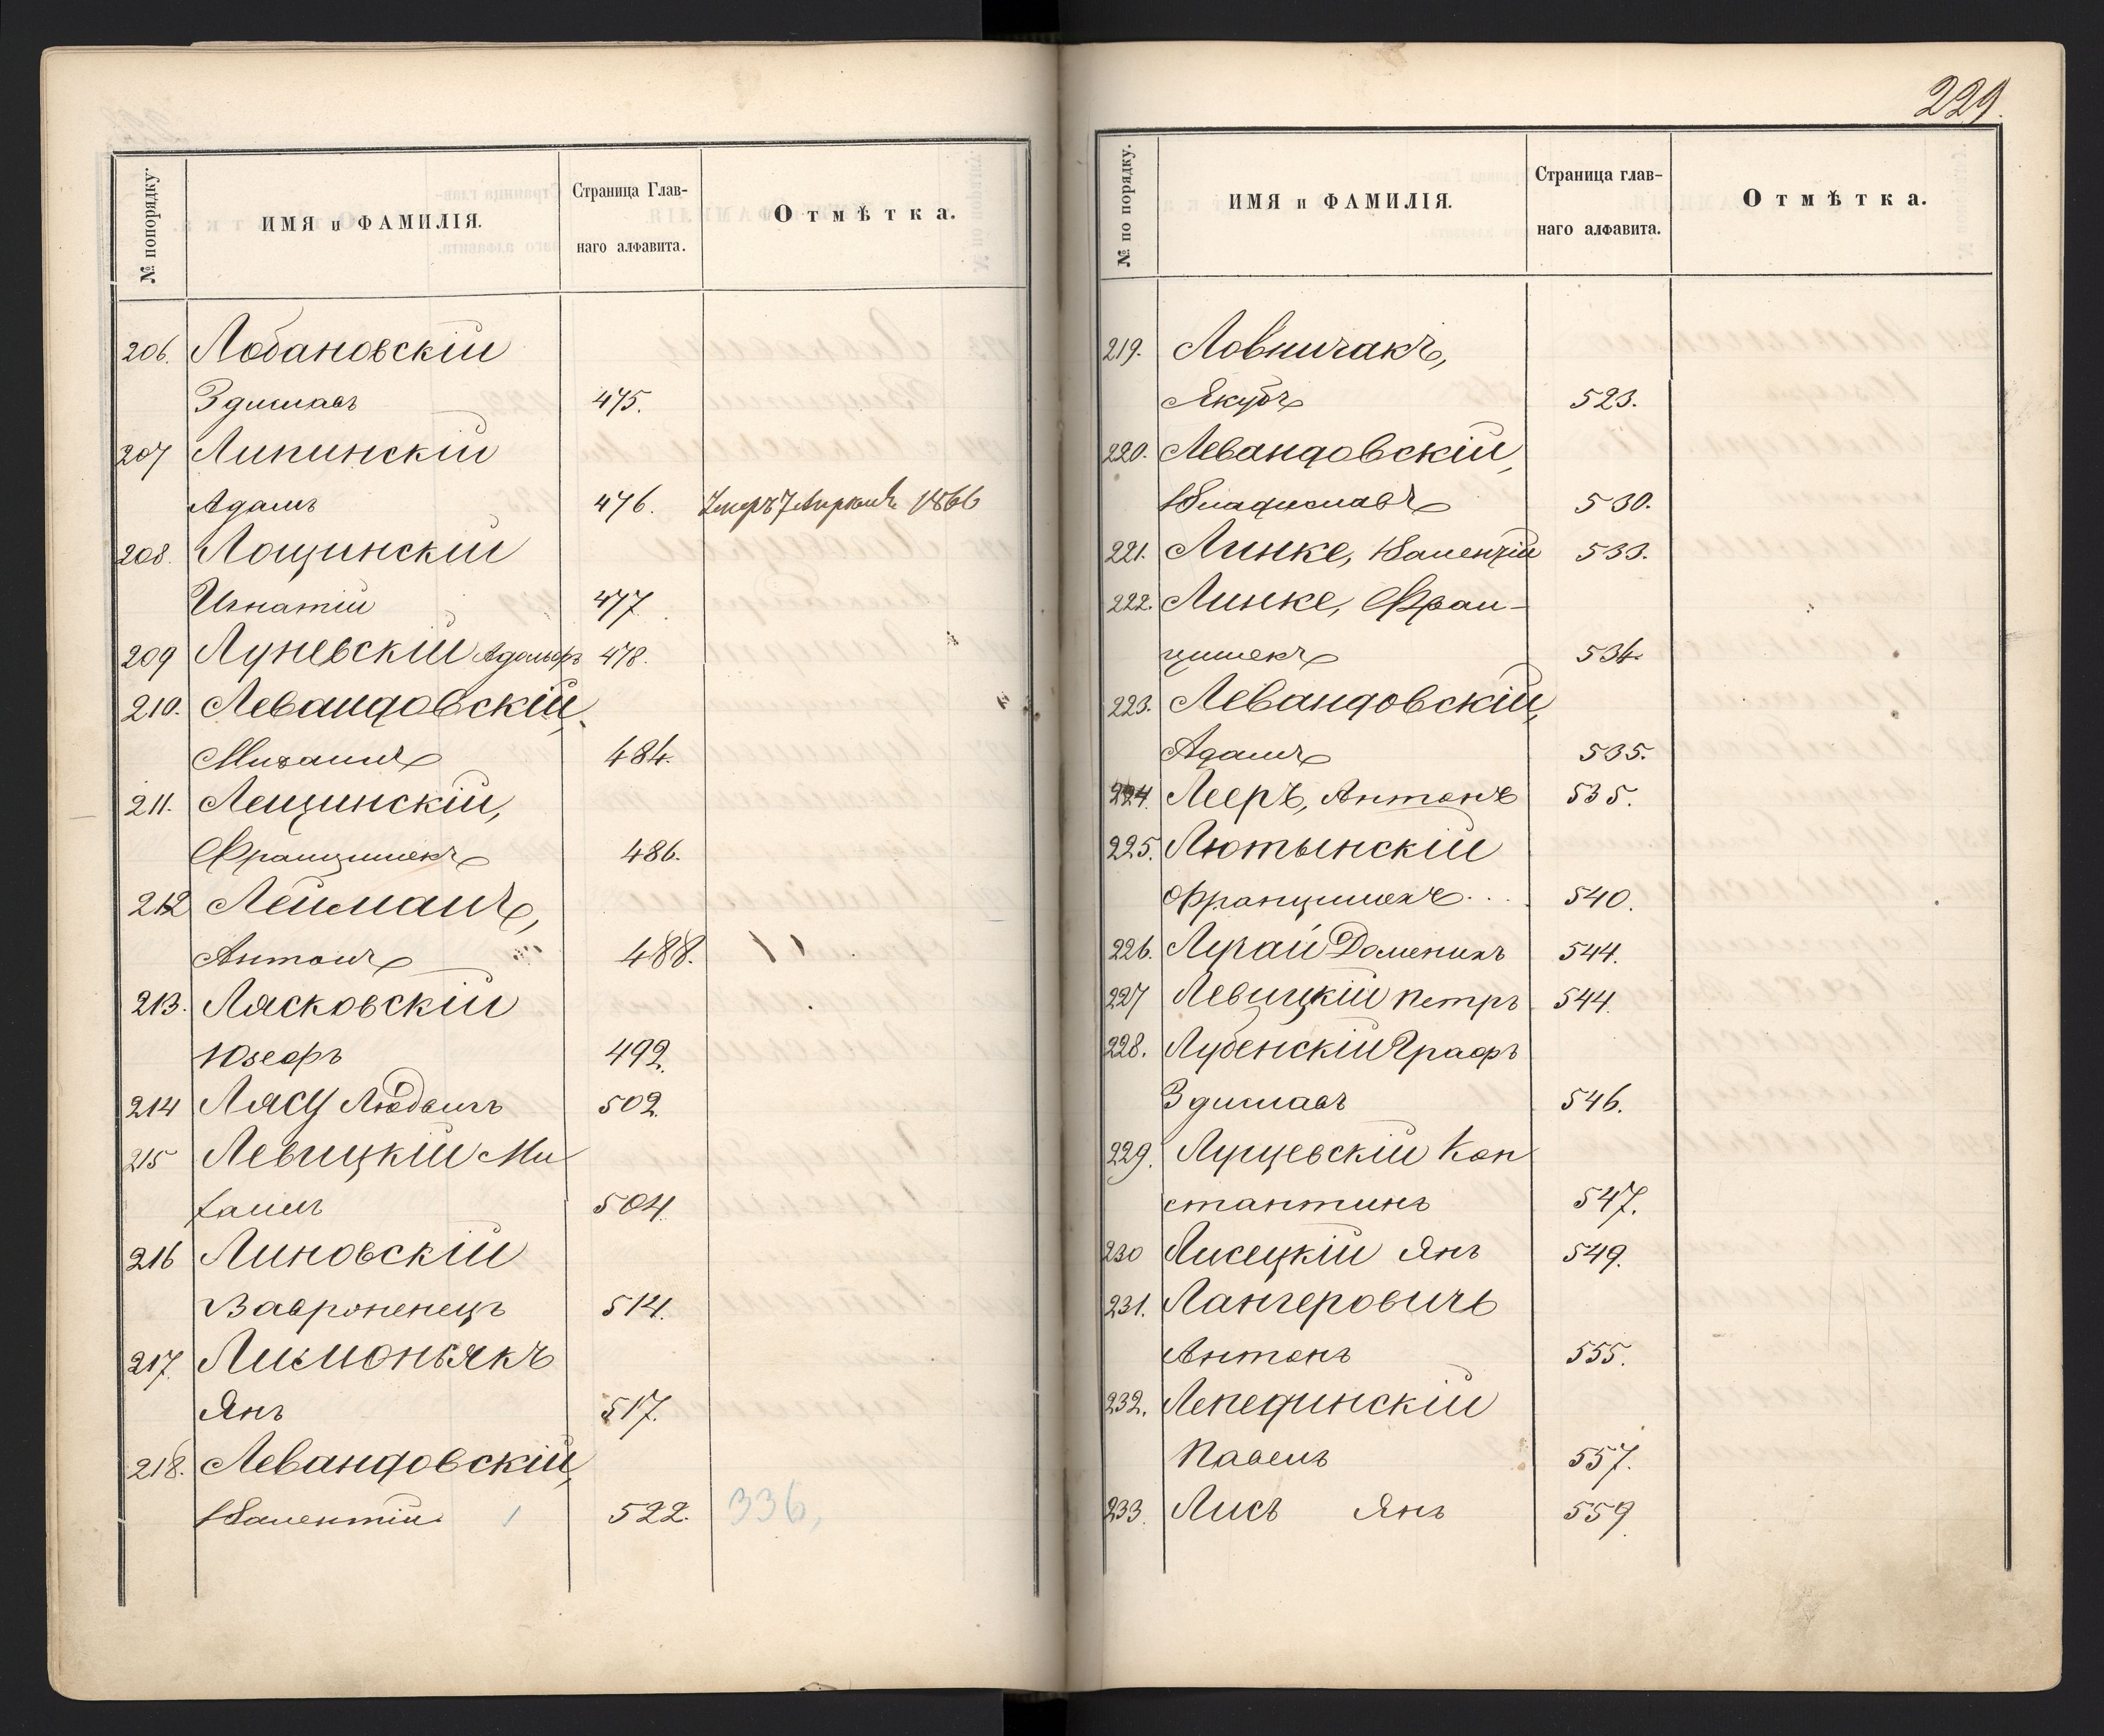 229.
№ попорядку.
ИМЯ и ФАМИЛІЯ.
Страница Глав-
наго алфавита.
Отмѣтка.
206. Лобановскій
Здиславъ 475.
207 Липинскій
Адамъ 476. 1866
208. Лощинскій
Игнатій 477
209 Луневскій Адольфъ 478.
210. Левандовскій,
Михаилъ 484.
211. Лещинскій,
Францишекъ 486.
212 Лейманъ,
Антонъ 488.
213. Лясковскій
Юзефъ 492.
214 Лясу Людвигъ 502
215 Левицкій Ми
хаилъ 504.
216 Линовскій
514.
217. Лимоньякъ
Янъ 517.
218. Левандовскій,
Валентій 522. 336,
№ по порядку.
ИМЯ и ФАМИЛІЯ.
Страница глав-
наго алфавита.
Отмѣтка.
219. Ловничакъ,
Якубъ 523.
220. Левандовскій,
Владиславъ 530.
221. Линке, Валентій 533.
222. Линке, Фран-
цишекъ 534.
223. Левандовскій,
Адамъ 535.
224. Лееръ, Антонъ 535.
225. Лютынскій
Францишекъ... 540.
226. Лугай Доменикъ 544.
227 Левицкій Петръ 544.
228. Лубенскій Графъ
Здиславъ 546.
229. Лущевскій Кон
стантинъ 547.
230 Лисецкій Янъ 549.
231. Лангеровичъ
Антонъ 555.
232. Лепединскій
Павелъ 557.
233. Лисъ Янъ 559.